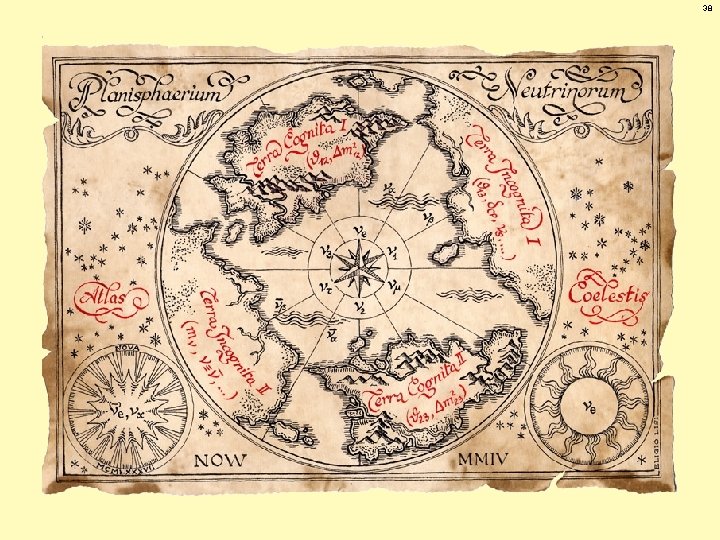 38
Planisphaerium
Neutrinorum
Terra Cognita I
(ϑ₁₂, Δm²₁₂)
Terra Incognita I
νₑ
ν₃
ν₁
ντ
νμ
ν₂
Atlas
Coelestis
Terra Incognita II
(mν, ν≡ν̄, ...)
Terra Cognita II
(ϑ₂₃, Δm²₂₃)
NOVA
ν̄ₑ, νₓ
νₑ
NOW
MMIV
ELIGIO LISI